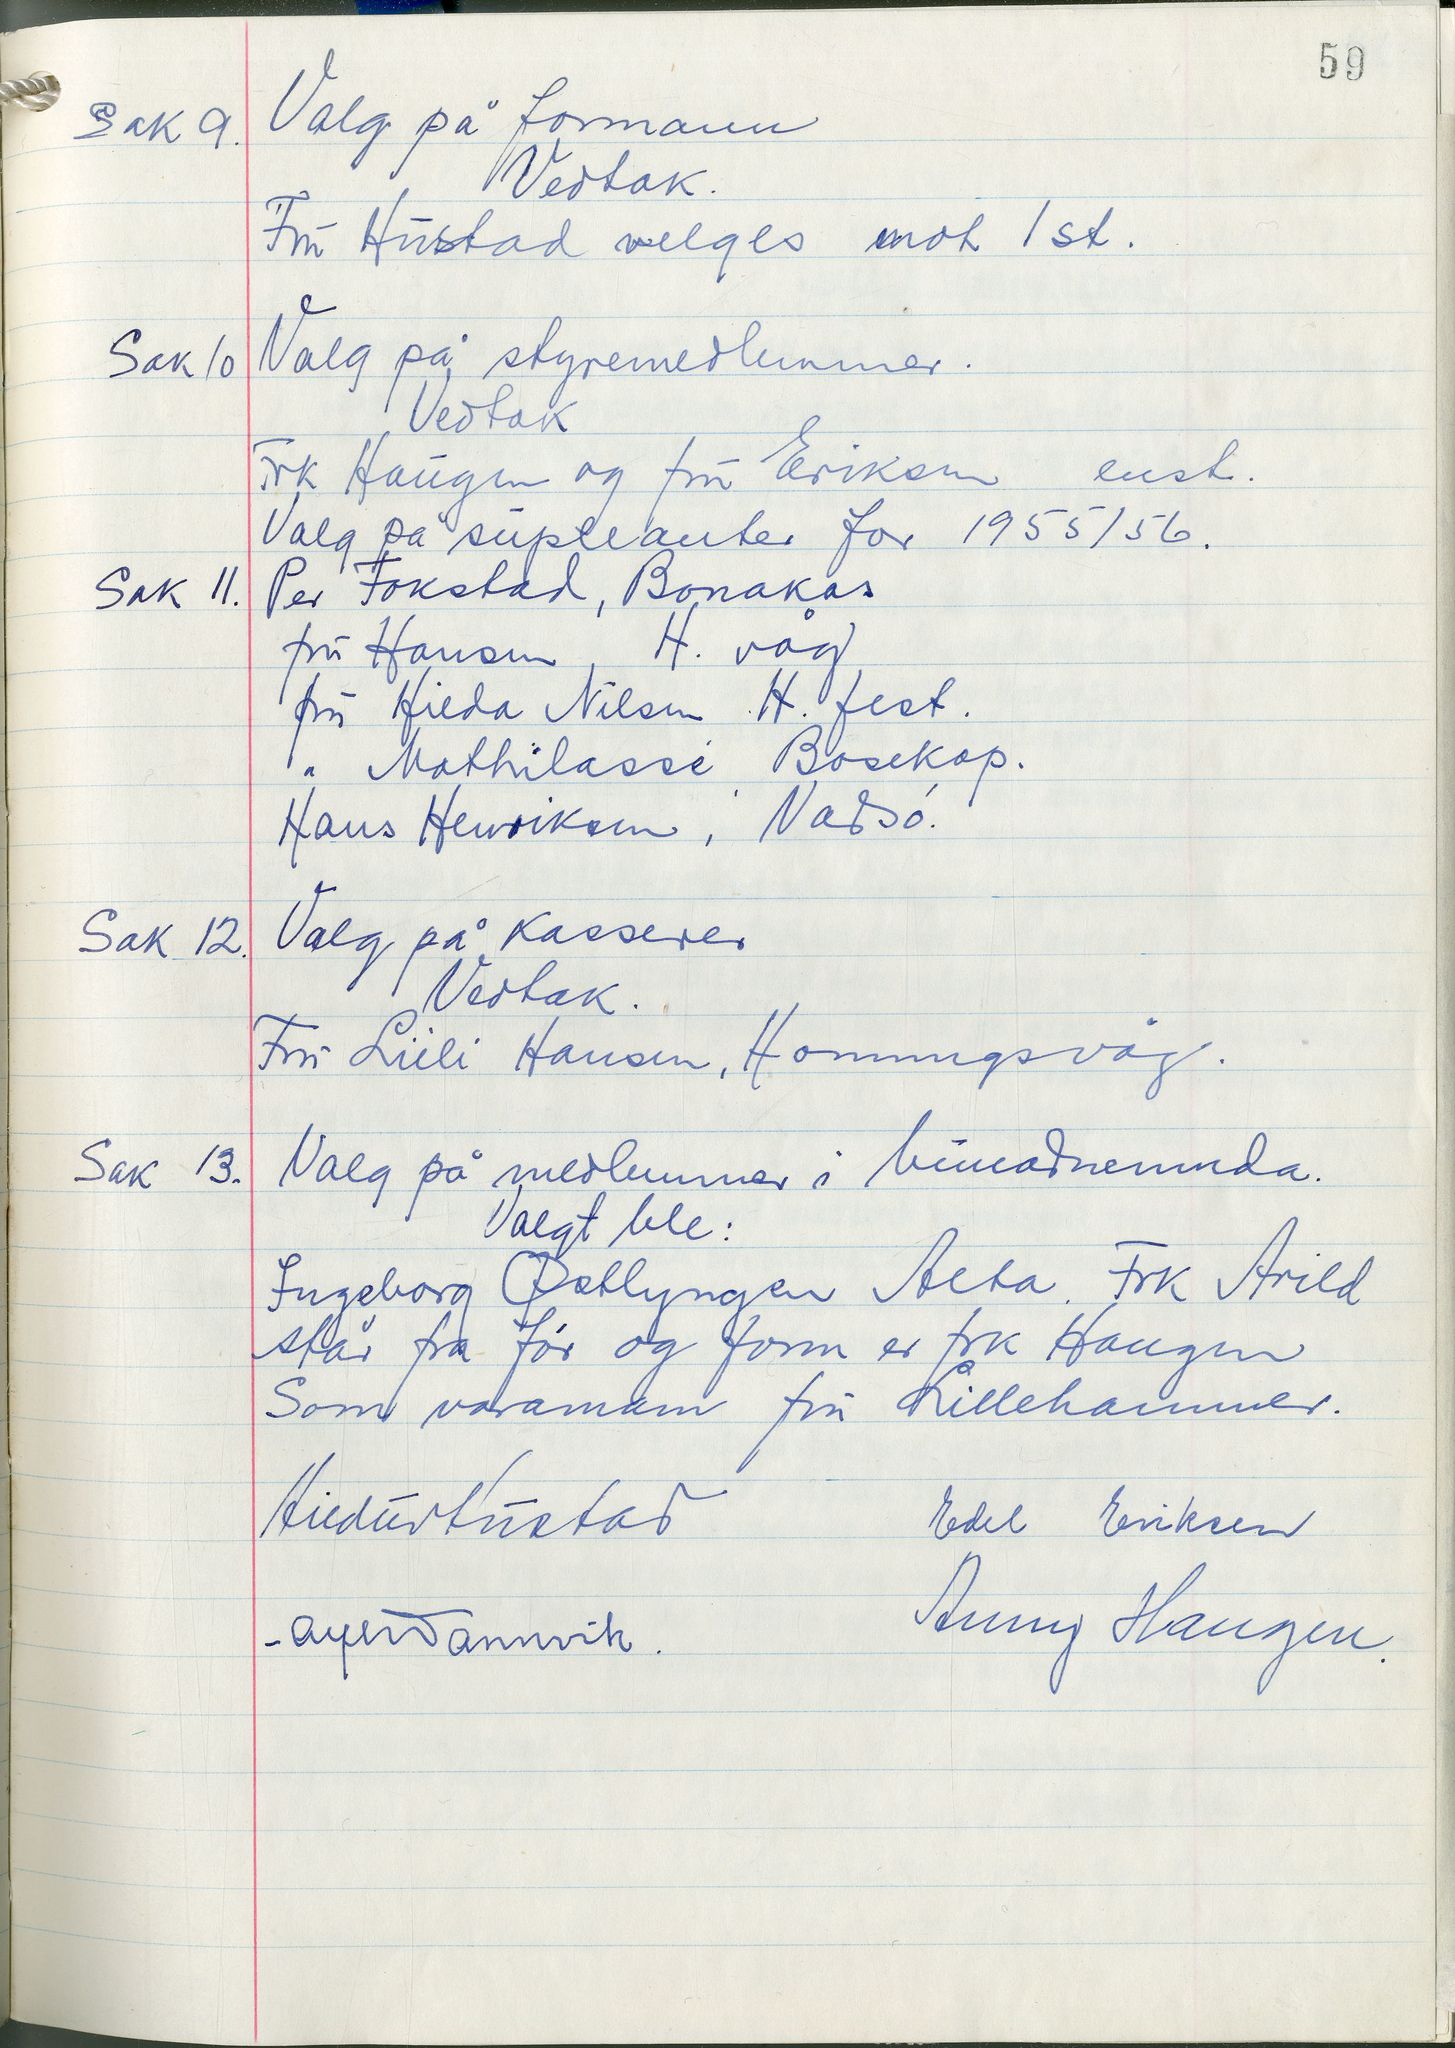 59
Sak 9. Valg på formann
Vedtak.
Fru Hustad velges mot 1 st.
Sak 10 Valg på styremedlemmer.
Vedtak
Frk Haugen og fru Eriksen enst.
Valg på supleanter for 1955/56.
Sak 11. Per Fokstad, Bonakas
fru Hansen, H. våg
fru Hilda Nilsen H. fest.
" Mathilassi Bosekop.
Hans Henriksen, Vadsø.
Sak 12. Valg på kasserer
Vedtak.
Fru Lilli Hansen, Honningsvåg.
Sak 13. Valg på medlemmer i bunadnemnda.
Valgt ble:
Ingeborg Østlyngen Alta. Frk Arild
står fra før og form er frk Haugen
Som varamann fru Lillehammer.
Hildur Hustad Edel Eriksen
Annvik. Anny Haugen.